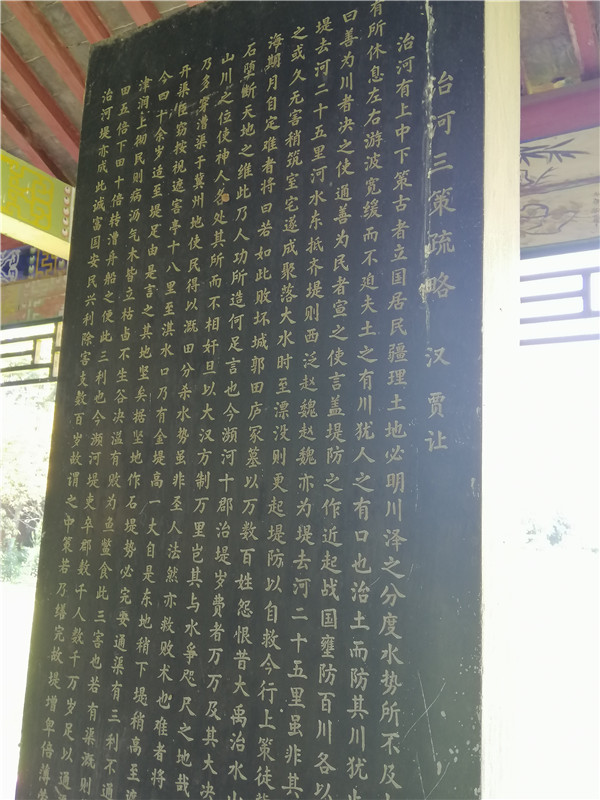 治河三策疏略 汉 贾让
治河有上中下策古者立国居民疆理土地必明川泽之分度水势所不及
有所休息左右游波宽缓而不迫夫土之有川犹人之有口也治土而防其川犹止
曰善为川者决之使通善为民者宣之使言盖堤防之作近起战国壅防百川各以
堤去河二十五里河水东抵齐堤则西泛赵魏赵魏亦为堤去河二十五里虽非其
之或久无害稍筑室宅遂成聚落大水时至漂没则更起堤防以自救今行上策徙
海期月自定难者将曰若如此败坏城郭田庐冢墓以万数百姓怨恨昔大禹治水山
石堕断天地之维此乃人功所造何足言也今濒河十郡治堤岁费者万万及其大决
山川之位使神人各处其所而不相奸且以大汉方制万里岂其与水争咫尺之地哉
乃多穿漕渠于冀州地使民得以溉田分杀水势虽非圣人法然亦救败术也难者将
开渠臣窃按视遮害亭十八里至淇水口乃有金堤高一大自是东地稍下堤稍高至遮
今四十余岁适至堤足由是言之其地坚矣据坚地作石堤势必完要通渠有三利不通
津润上彻民则病沥气木皆立枯卤不生谷决溢有败为鱼鳖食此三害也若有渠溉则
田五倍下田十倍转漕舟船之便此三利也今濒河堤吏卒郡数千人数千万岁足以通
治河堤亦成此诚富国安民兴利除害支数百岁故谓之中策若乃缮完故堤增卑倍薄